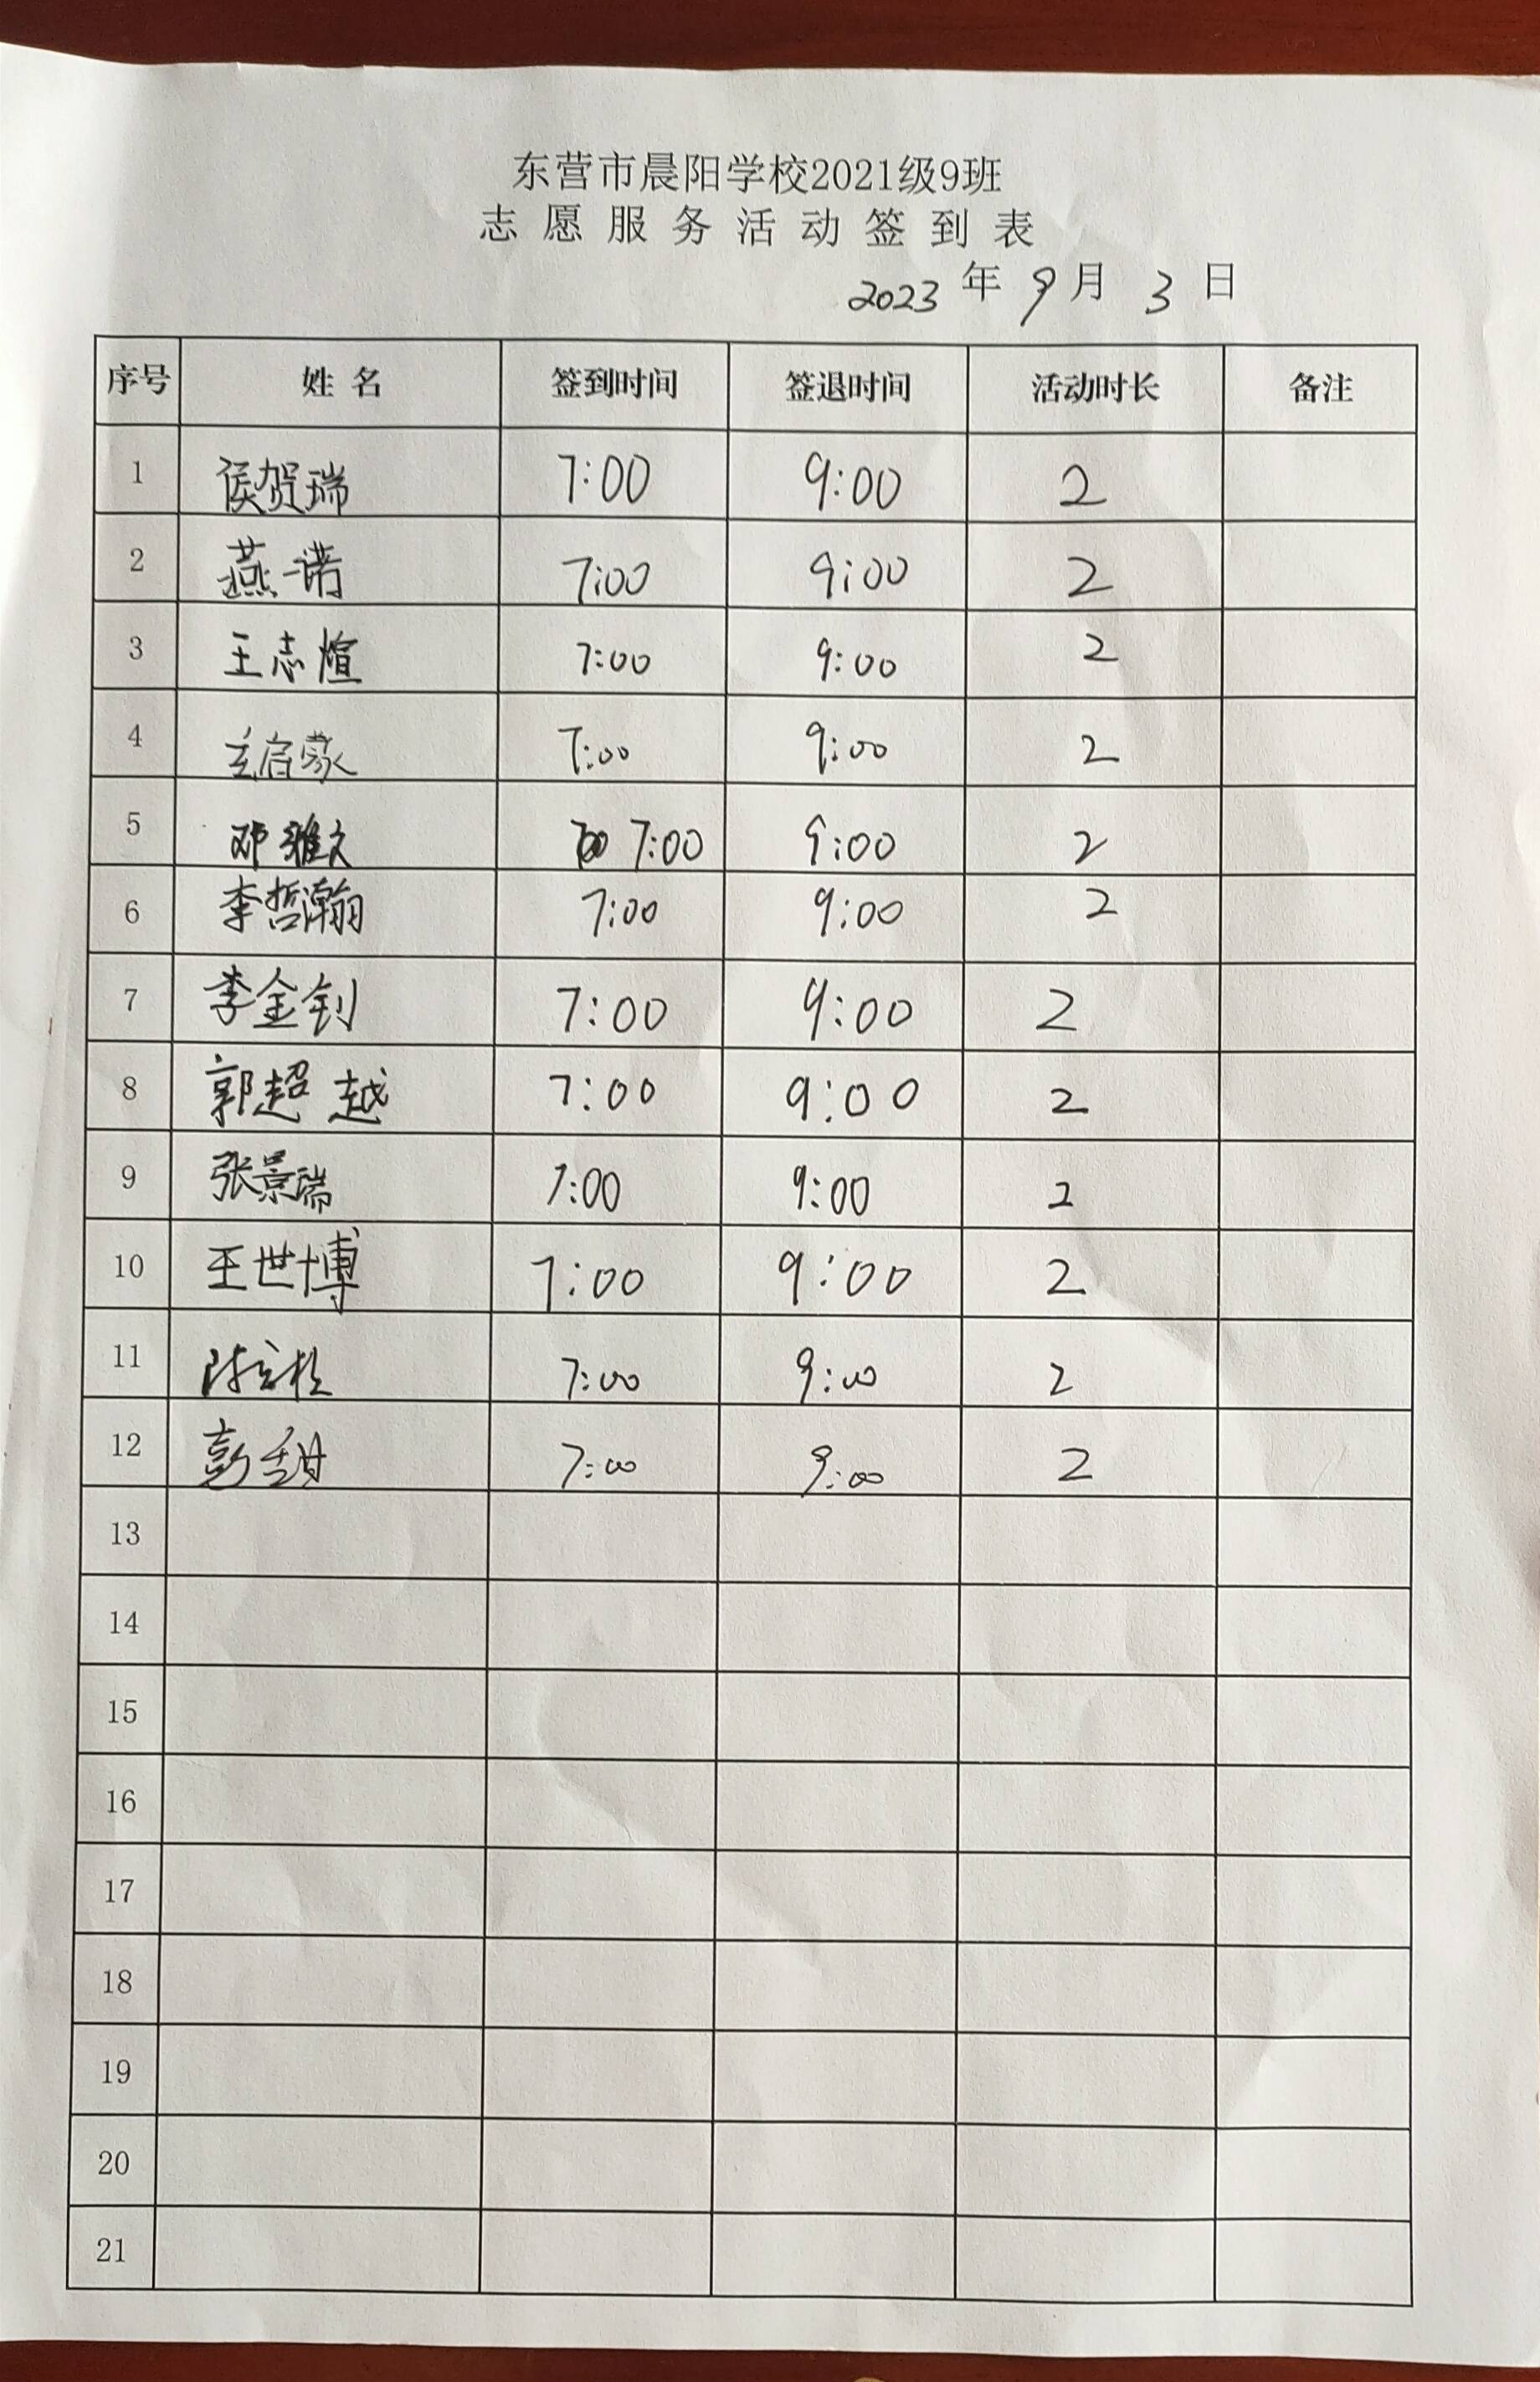 东营市晨阳学校2021级9班
志愿服务活动签到表
2023 年 9 月 3 日
序号 姓名 签到时间 签退时间 活动时长 备注
1 侯贺瑞 7:00 9:00 2
2 燕一诺 7:00 9:00 2
3 王志煊 7:00 9:00 2
4 7:00 9:00 2
5 邓雅文 7:00 9:00 2
6 李哲瀚 7:00 9:00 2
7 李金钊 7:00 9:00 2
8 郭超越 7:00 9:00 2
9 张景瑞 7:00 9:00 2
10 王世博 7:00 9:00 2
11 7:00 9:00 2
12 彭甜 7:00 9:00 2
13
14
15
16
17
18
19
20
21